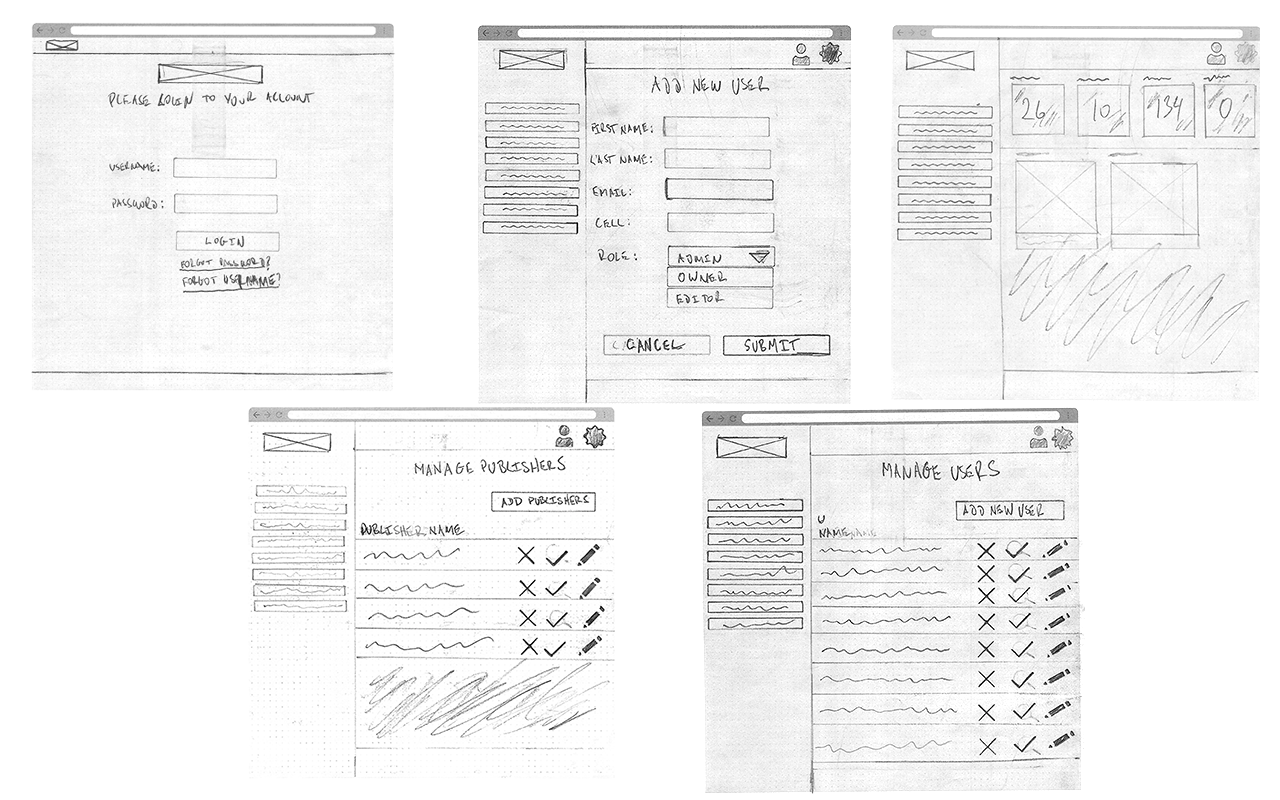 PLEASE LOGIN TO YOUR ACCOUNT
USERNAME:
PASSWORD:
LOGIN
FORGOT PASSWORD?
FORGOT USERNAME?
ADD NEW USER
FIRST NAME:
LAST NAME:
EMAIL:
CELL:
ROLE:
ADMIN
OWNER
EDITOR
CANCEL
SUBMIT
26
10
134
0
MANAGE PUBLISHERS
ADD PUBLISHERS
PUBLISHER NAME
MANAGE USERS
ADD NEW USER
U
NAME NAME